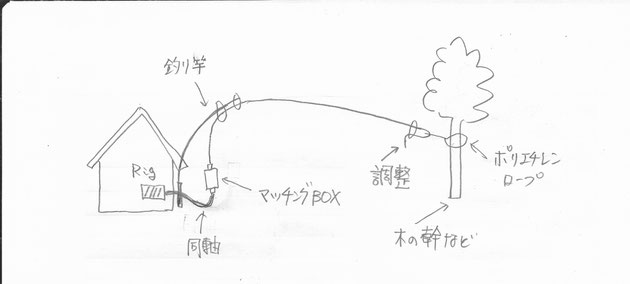 釣り竿
Rig
マッチングBOX
同軸
調整
ポリエチレン
ロープ
木の幹など